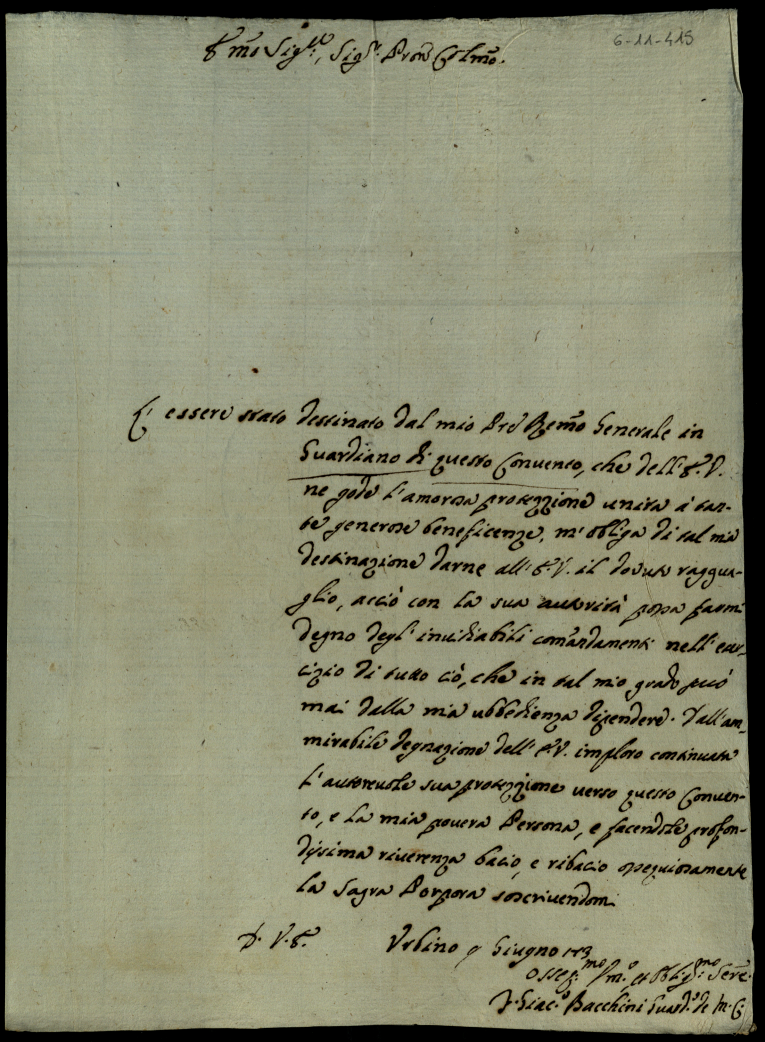 6-11-415
E.mo Sig.re, Sig.r Pron Col.mo.
L'essere stato destinato dal mio Pre Remo Generale in
Guardiano di questo Convento, che dell'E.V.
ne gode l'amorosa protezzione unita à tan-
te generose beneficenze, m'obliga di tal mia
destinazione darne all'E.V. il dovuto raggua-
glio, acciò con la sua autorità possa farmi
degno degl'invidiabili comandamenti nell'eser-
cizio di tutto ciò, che in tal mio grado può
mai dalla mia ubbedienza dipendere. Dall'am-
mirabile degnazione dell'E.V. imploro continuata
l'autorevole sua protezzione verso questo Conven-
to, e la mia povera Persona, e facendole profon-
dissima riverenza bacio, e ribacio ossequiosamente
la Sagra Porpora soscrivendomi
D. V. E.
Urbino 9 Giugno
Osseq.mo et Obblig.mo Serre.
F. Giac.o Bacchini Guard.o de M. C.